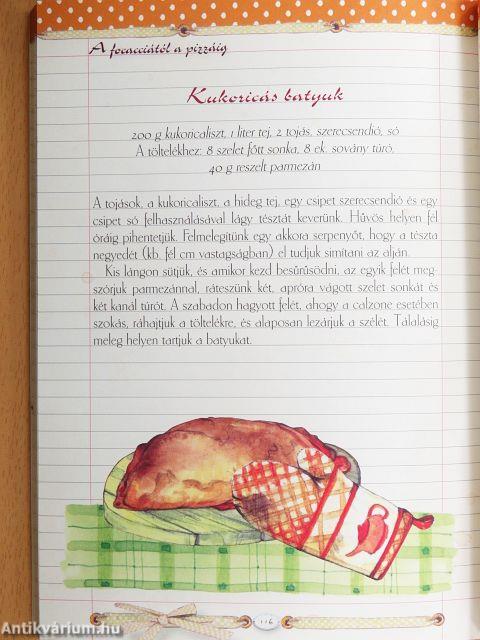 A focacciától a pizzáig
Kukoricás batyuk
200 g kukoricaliszt, 1 liter tej, 2 tojás, szerecsendió, só
A töltelékhez: 8 szelet főtt sonka, 8 ek. sovány túró,
40 g reszelt parmezán
A tojások, a kukoricaliszt, a hideg tej, egy csipet szerecsendió és egy
csipet só felhasználásával lágy tésztát keverünk. Hűvös helyen fél
óráig pihentetjük. Felmelegítünk egy akkora serpenyőt, hogy a tészta
negyedét (kb. fél cm vastagságban) el tudjuk simítani az alján.
Kis lángon sütjük, és amikor kezd besűrűsödni, az egyik felét meg-
szórjuk parmezánnal, ráteszünk két, apróra vágott szelet sonkát és
két kanál túrót. A szabadon hagyott felét, ahogy a calzone esetében
szokás, ráhajtjuk a töltelékre, és alaposan lezárjuk a szélét. Tálalásig
meleg helyen tartjuk a batyukat.
116
Antikvárium.hu